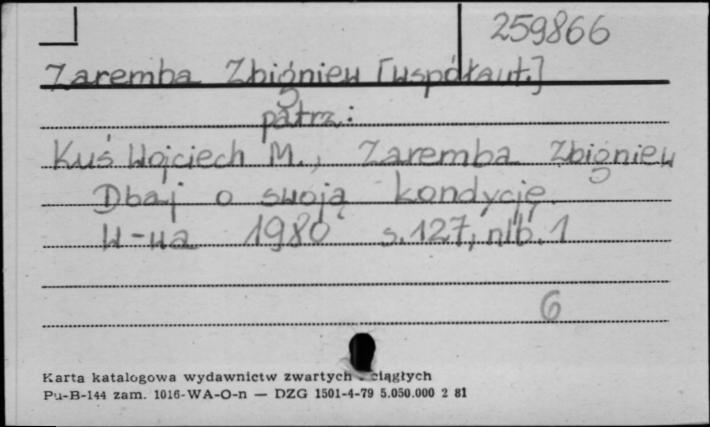 259866
Zaremba Zbigniew [współaut.]
patrz:
Kuś Wojciech M., Zaremba Zbigniew
Dbaj o swoją kondycję.
W-wa 1980 s.127, nlb.1
6
Karta katalogowa wydawnictw zwartych ciągłych
Pu-B-144 zam. 1016-WA-O-n — DZG 1501-4-79 5.050.000 2 81